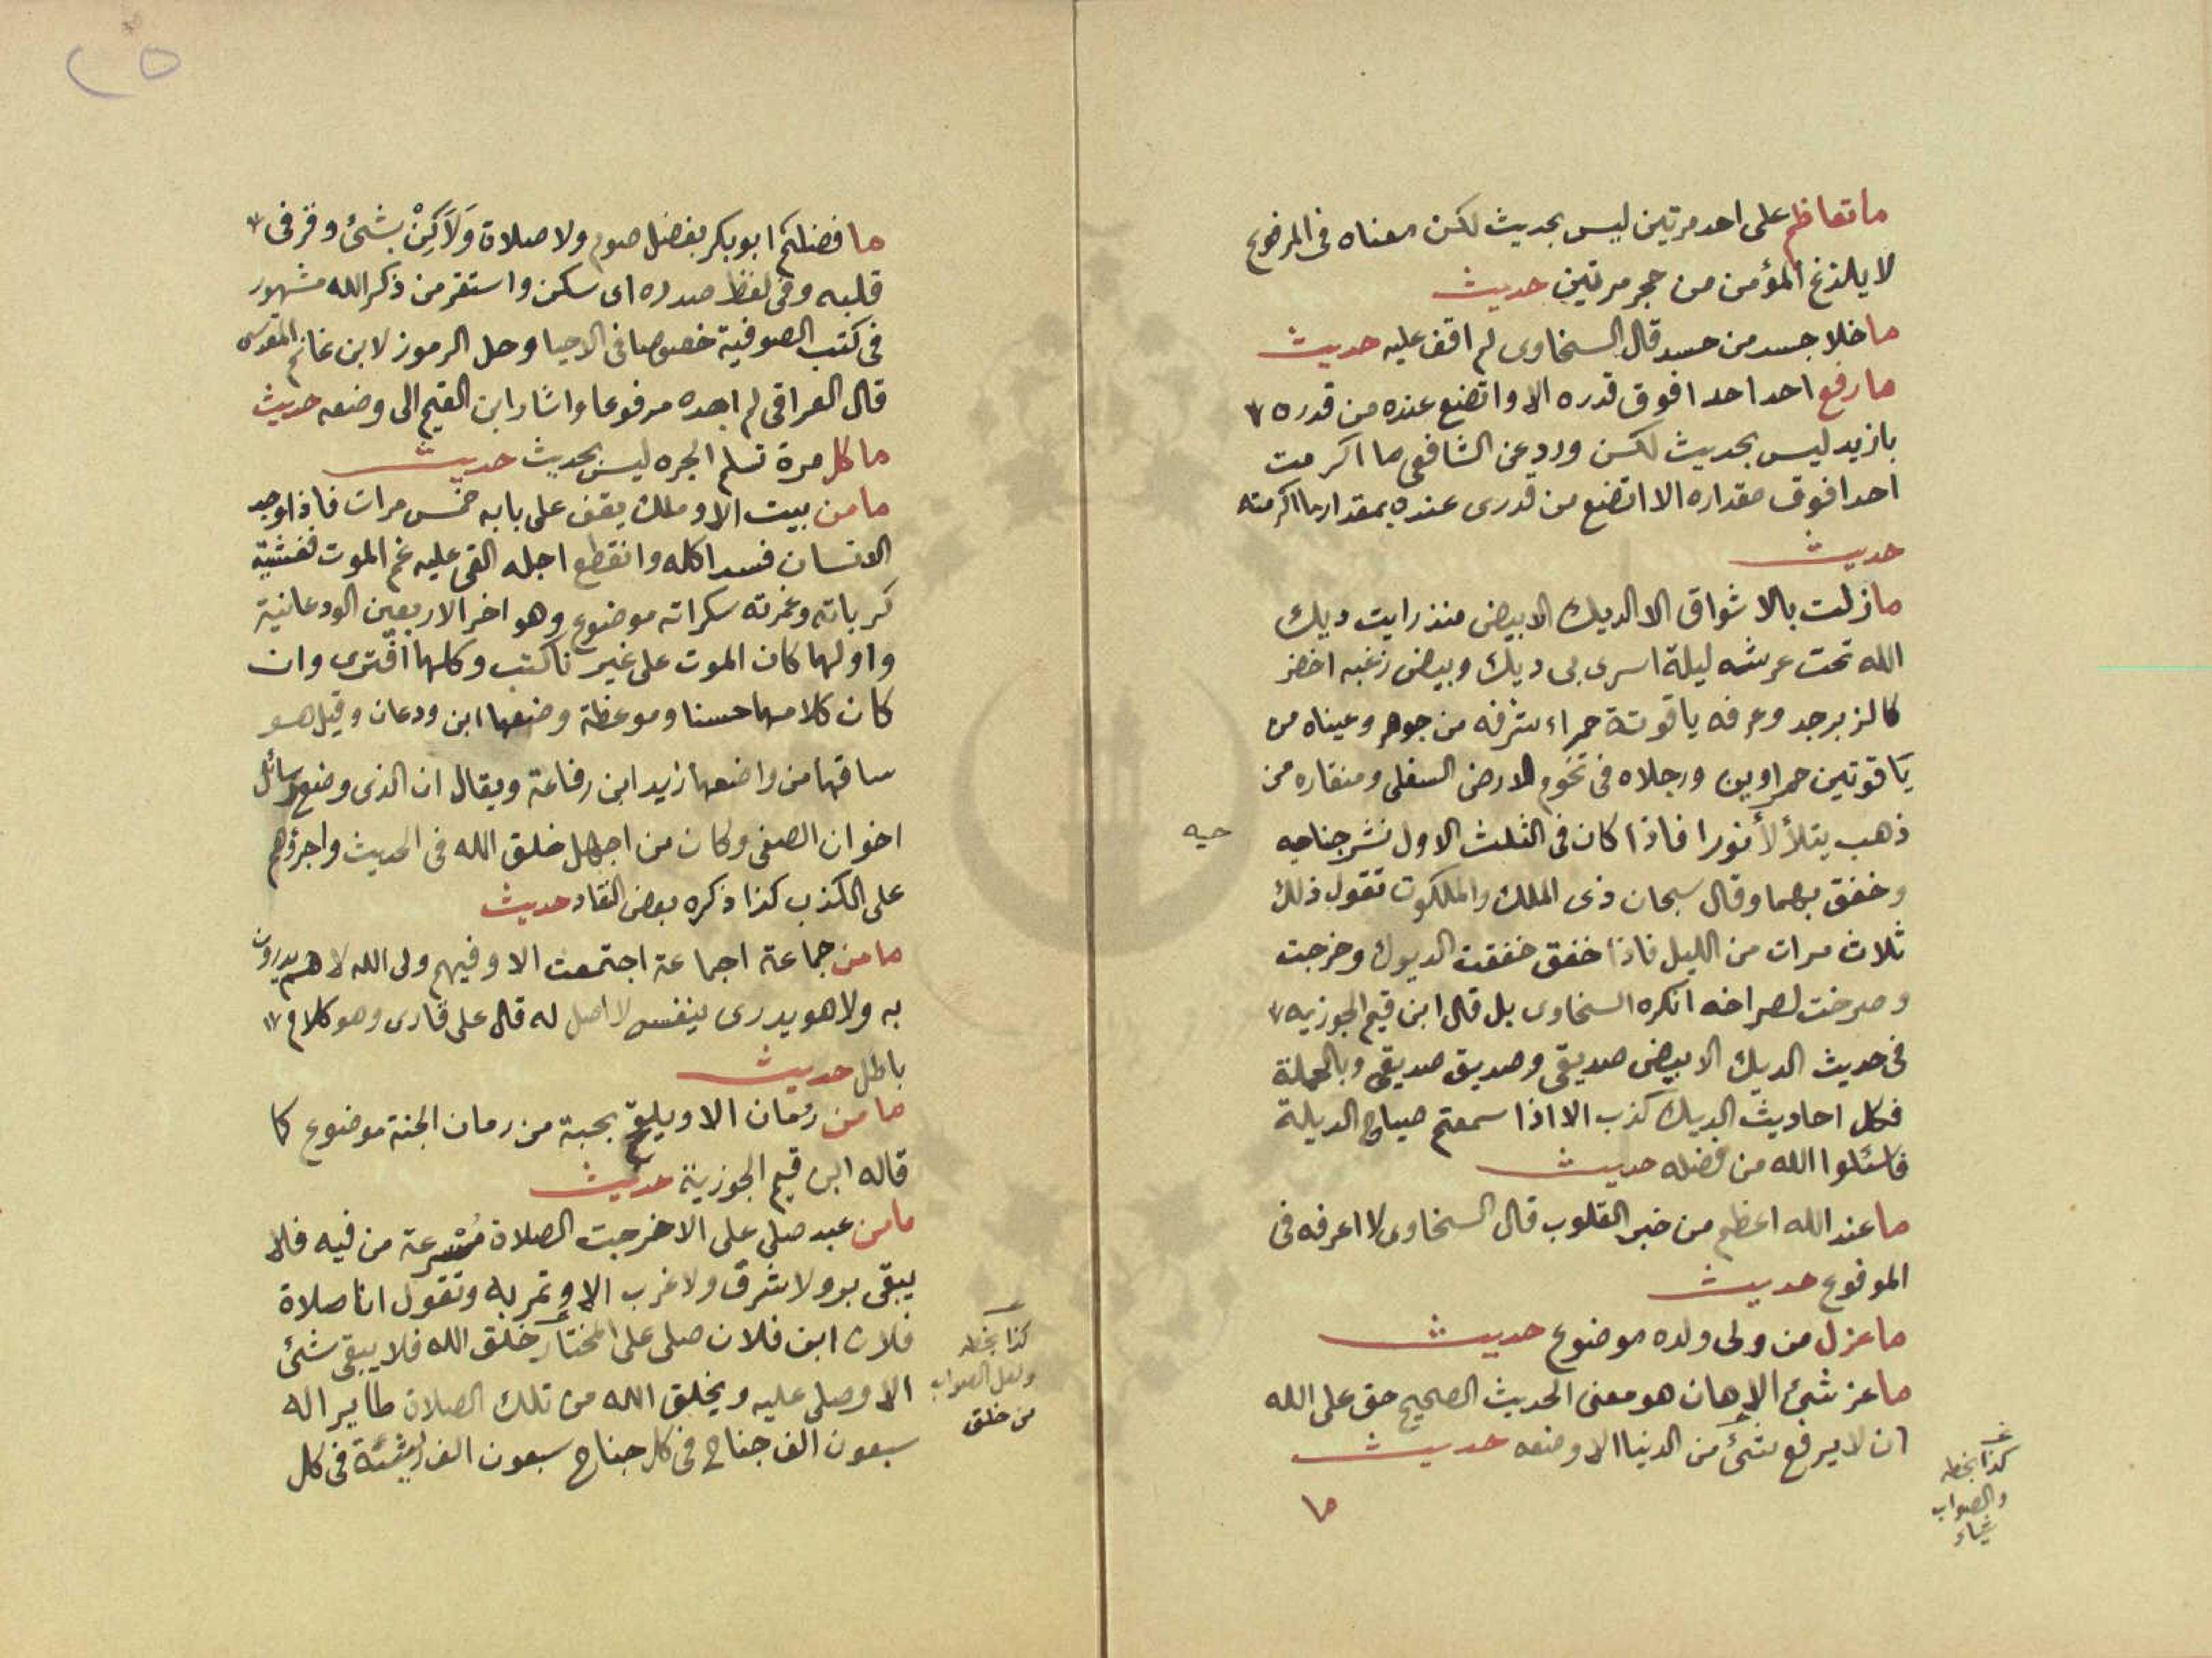 ما تعاظم على احد مرتين ليس بحديث لكن معناه فى المرفوع
لا يلدغ المؤمن من حجر مرتين حديث
ما خلا جسد من حسد قال السخاوى لم اقف عليه حديث
ما رفع احد احدا فوق قدره الا واتضع عنده من قدره
بازيد ليس بحديث لكن ورد عن الشافعى ما اكرمت
احدا فوق مقداره الا اتضع من قدرى عنده بمقدار ما اكرمته
حديث
ما زلت بالاشواق الا الديك الابيض منذ رايت ديك
الله تحت عرشه ليلة اسرى بى ديك وبيض زغبه اخضر
كالزبرجد وعرفه ياقوتة حمراء شرفه من جوهر وعيناه من
ياقوتتين حمراوين ورجلاه فى تخوم الارض السفلى ومنقاره من
ذهب يتلألأ نورا فاذا كان فى الثلث الاول نشر جناحيه
حيه
وخفق بهما وقال سبحان ذى الملك والملكوت تقول ذلك
ثلاث مرات من الليل فاذا خفق خفقت الديوك وخرجت
وصرخت لصراخه انكره السخاوى بل قال ابن قيم الجوزيه
فى حديث الديك الابيض صديقى وصديق صديقى وبالجملة
فكل احاديث الديك كذب الا اذا سمعتم صياح الديكة
فاسئلوا الله من فضله حديث
ما عند الله اعظم من خبر القلوب قال السخاوى لا اعرفه فى
المرفوع حديث
ما عزل من ولى ولده موضوع حديث
ما عز شئ الا هان هو معنى الحديث الصحيح حق على الله
ان لا يرفع شئ من الدنيا الا وضعه حديث
كذا بخطه
والصواب
شياء
ما
٢٥
ما فضلكم ابو بكر بفضل صوم ولا صلاة ولاكن بشئ وقر فى
قلبه وفى لفظ صدره اى سكن واستقر من ذكر الله مشهور
فى كتب الصوفية خصوصا فى الاحيا وحل الرموز لابن غانم المقدسى
قال العراقى لم اجده مرفوعا واشار ابن القيم الى وضعه حديث
ما كل مرة تسلم الجره ليس بحديث حديث
ما من بيت الا وملك يقف على بابه خمس مرات فاذا وجد
الانسان فسد اكله وانقطع اجله القى عليه غم الموت فغشيته
كرباته وغمرته سكراته موضوع وهو اخر الاربعين الودعانية
واولها كان الموت على غيرنا كتب وكلها افترى وان
كان كلامها حسنا وموعظة وضعها ابن ودعان وقيل هو
ساقها من واضعها زيد ابن رفاعة ويقال ان الذى وضع رسائل
اخوان الصفى وكان من اجهل خلق الله فى الحديث واجرؤهم
على الكذب كذا ذكره بعض النقاد حديث
ما من جماعة اجماعة اجتمعت الا وفيهم ولى الله لا هم يدرون
به ولا هو يدرى بنفسه لا اصل له قال على قارى وهو كلام
باطل حديث
ما من رمان الا ويلقح بحبة من رمان الجنة موضوع كا
قاله ابن قيم الجوزية حديث
ما من عبد صلى على الا خرجت الصلاة مسرعة من فيه فلا
يبقى بر ولا شرق ولا غرب الا وتمر به وتقول انا صلاة
فلان ابن فلان صلى على المختار خلق الله فلا يبقى شئ
الا وصلى عليه ويخلق الله من تلك الصلاة طاير اله
سبعون الف جناح فى كل جناح سبعون الف ريشئة فى كل
كذا بخطه
ولعل الصواب
من خلق